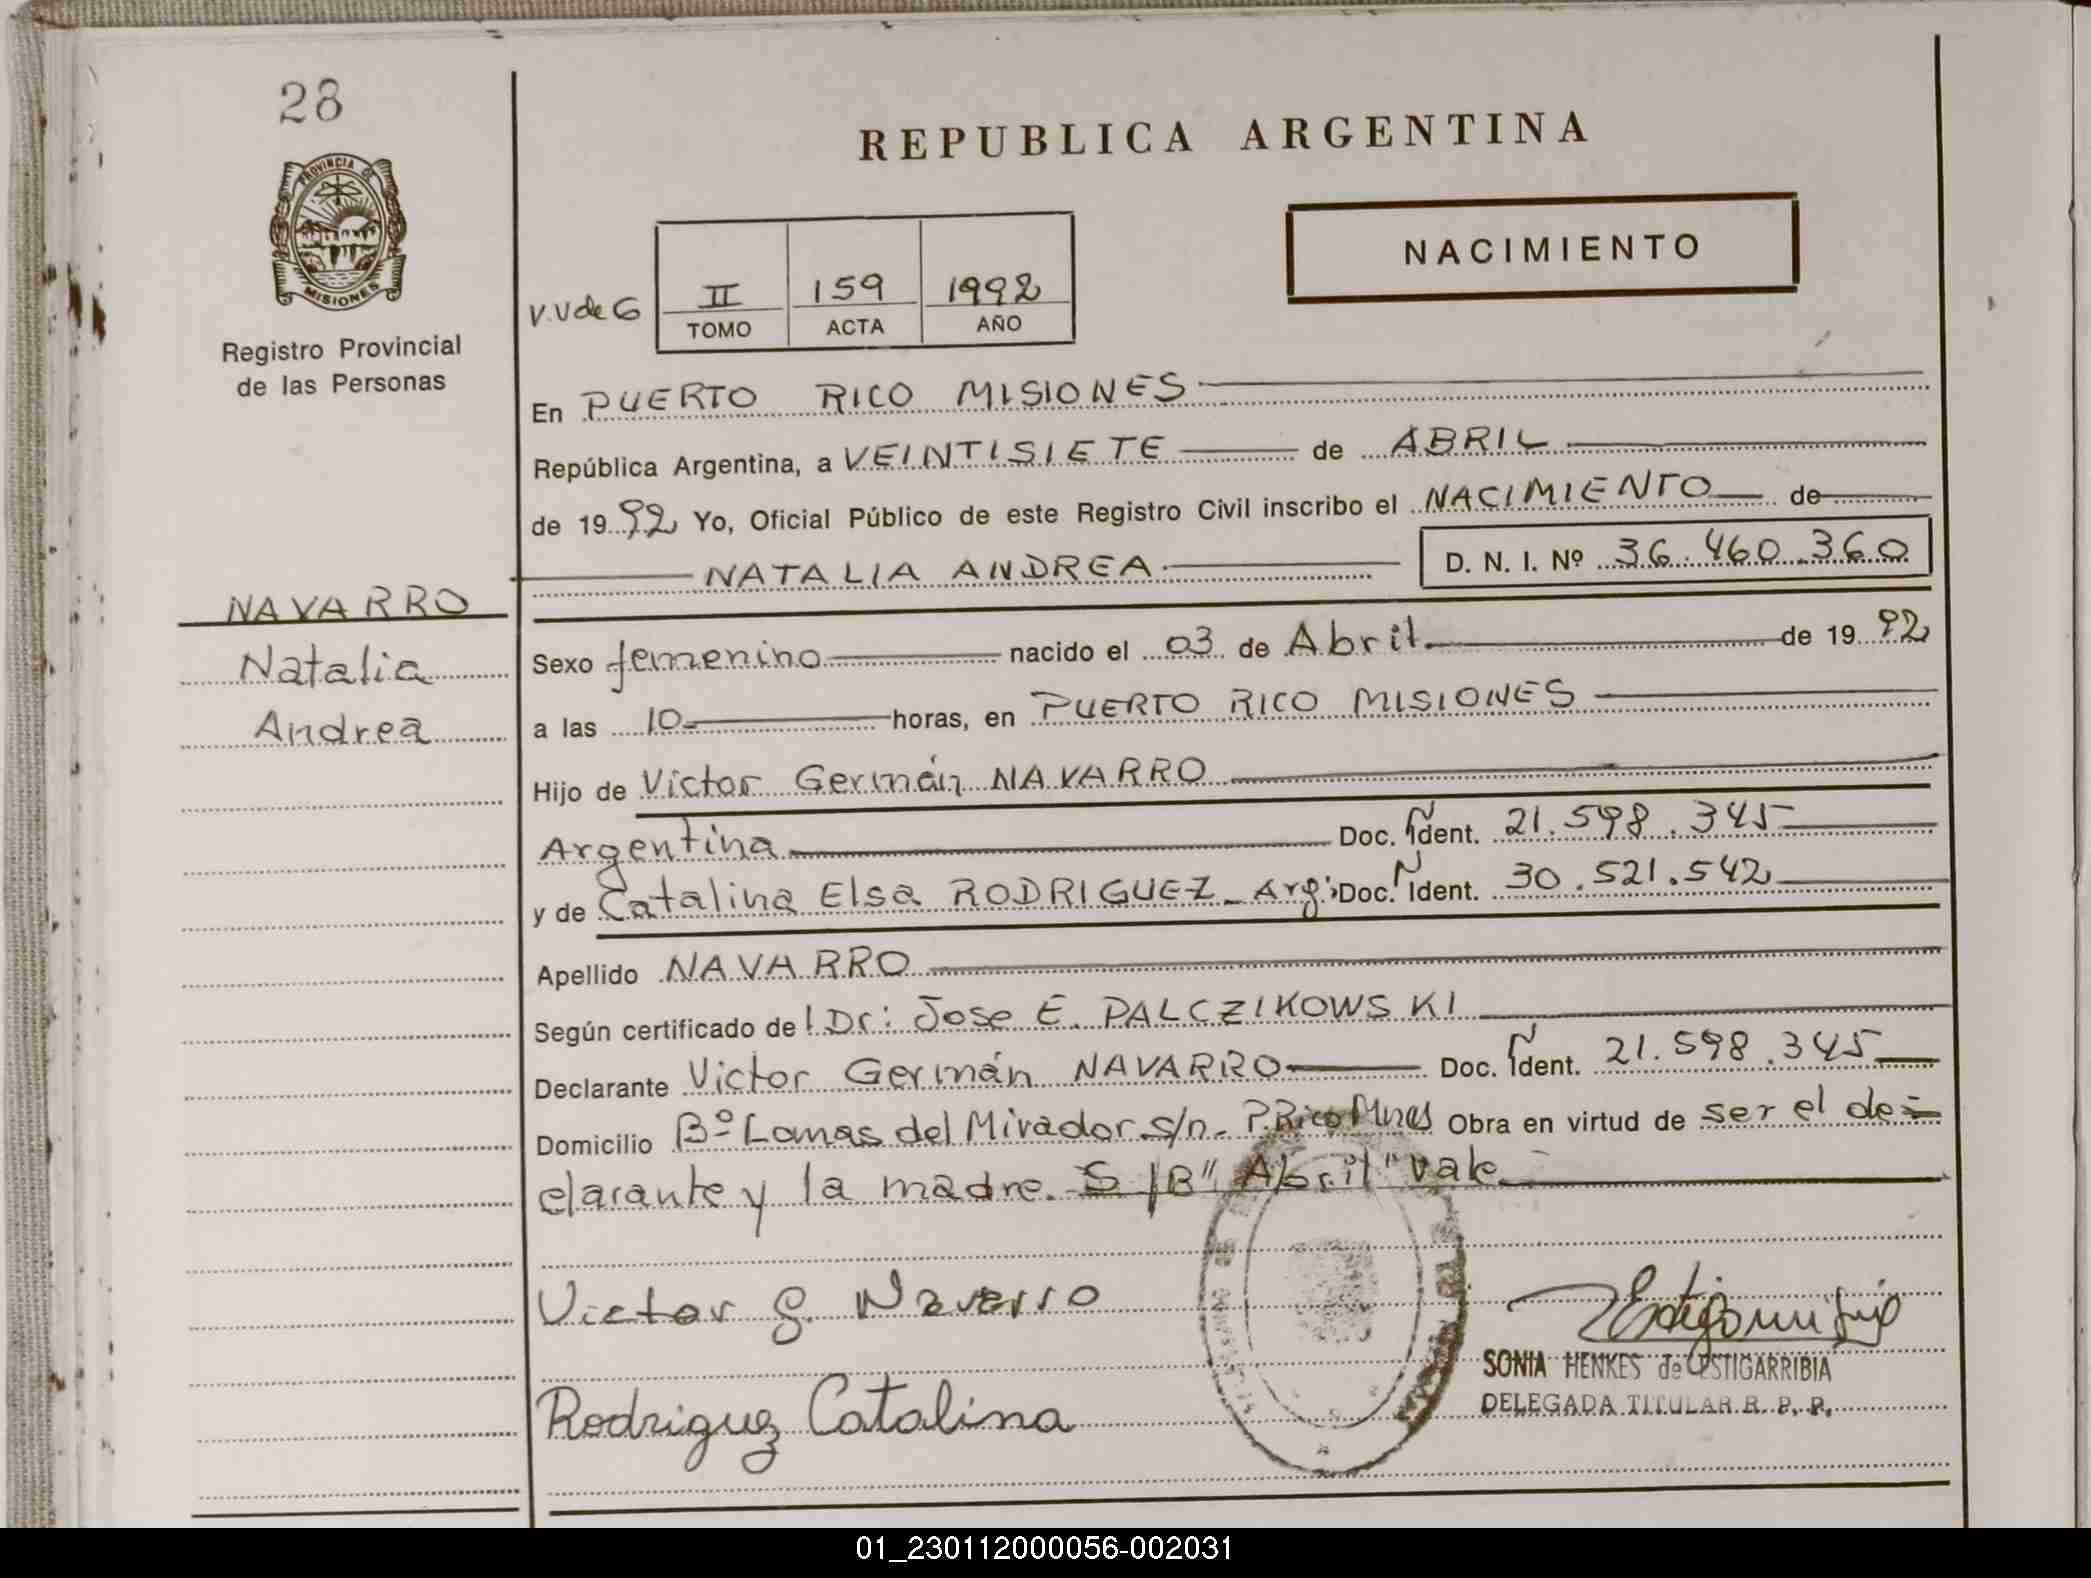 28
PROVINCIA DE
MISIONES
Registro Provincial
de las Personas
REPUBLICA ARGENTINA
NACIMIENTO
V.V de G
II 159 1992
TOMO ACTA AÑO
En PUERTO RICO MISIONES
República Argentina, a VEINTISIETE de ABRIL
de 1992 Yo, Oficial Público de este Registro Civil inscribo el NACIMIENTO de
NATALIA ANDREA D. N. I. Nº 36.460.360
NAVARRO
Natalia
Andrea
Sexo femenino nacido el 03 de Abril de 1992
a las 10 horas, en PUERTO RICO MISIONES
Hijo de Victor Germán NAVARRO
Argentina Doc. Ident. 21.598.345
y de Catalina Elsa RODRIGUEZ - Arg. Doc. Ident. 30.521.542
Apellido NAVARRO
Según certificado de Dr: Jose E. PALCZIKOWSKI
Declarante Victor Germán NAVARRO Doc. Ident. 21.598.345
Domicilio Bº Lomas del Mirador s/n - P. Rico Mnes Obra en virtud de ser el de-
clarante y la madre. S/B "Abril" Vale
Victor G. Navarro
Rodriguez Catalina
SONIA HENKES de ESTIGARRIBIA
DELEGADA TITULAR R. P. P.
01_230112000056-002031